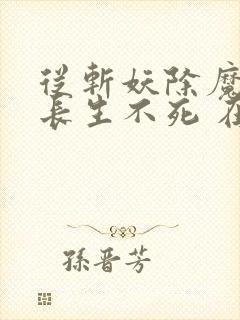 從斬妖除魔
長生不死 在
孫晉芳